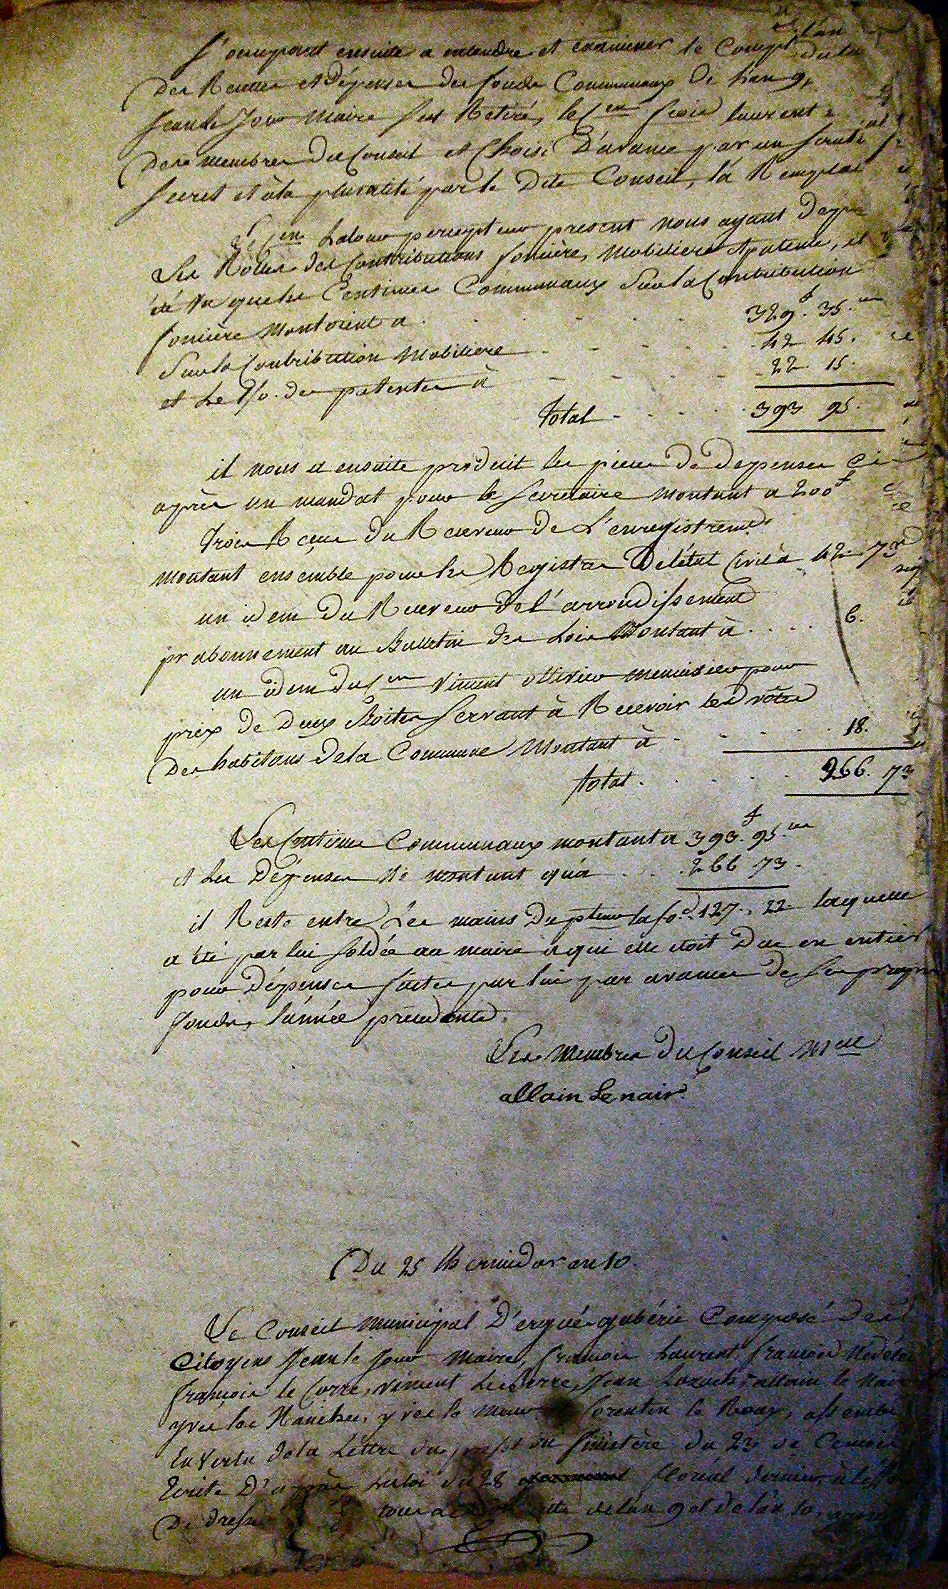 S'occupant ensuite a entendre et examiner le Compte
Des Recettes et dépenses des fonds Communaux de l'an 9,
Jean le Jour Maire s'est Retiré, le Cen Laurent
Des membres du Conseil et Choisi D'avance par un scrutin
Secret et à la pluralité par le Dit Conseil, l'a Remplacé
Le Cen percepteur present nous ayant
Les Rolles des Contributions foncière, Mobiliere et patente, et
que les Centimes Communaux Sur la Contribution
foncière Montoient a . 329# 35 cm
Sur la Contribution Mobiliere 42 45.
et Le 1/0. des patentes à 22 15.
Total 393 95.
il nous a ensuite produit les pieces de depenses Ci
après un mandat pour le Secretaire montant a 200#
Trois Reçus du Receveur de L'enregistrement
montant ensemble pour les Registres De létat Civil à 42 73
un idem du Receveur de l'arrondissement
pr abonnement au Bulletin des Lois Montant à 6.
un idem du Cen Vincent ollivier menuisier pour
prix de Deux Boites Servant à Recevoir les votes
Des habitans de la Commune Montant à 18.
total. 266. 73
Les Centimes Communaux montant a 393# 95 cm
et Les Dépenses Ne montant qu'a 266 73.
il Reste entre Les mains Du la so. 127. 22 laquelle
a été par lui soldée au maire à qui elle étoit Due en entier
pour dépenses faites par lui par avance de ses propres
fonds, l'année précedente.
Les Membres du Conseil Mal
allain Le nair
Du 25 thermidor an 10.
Le Conseil Municipal D'ergué-gabéric Composé des
Citoyens Jean le Jour Maire, francois Laurent, francois
francois le Corre, Vincent Jean allain le Nair
yves le yves le Corentin le Roux, assemblé
En Vertu de la Lettre du prefet du finistère du 23 de Ce mois
Ecrite D'après la loi du 28 floréal dernier à
De de l'an 9 et de l'an 10,